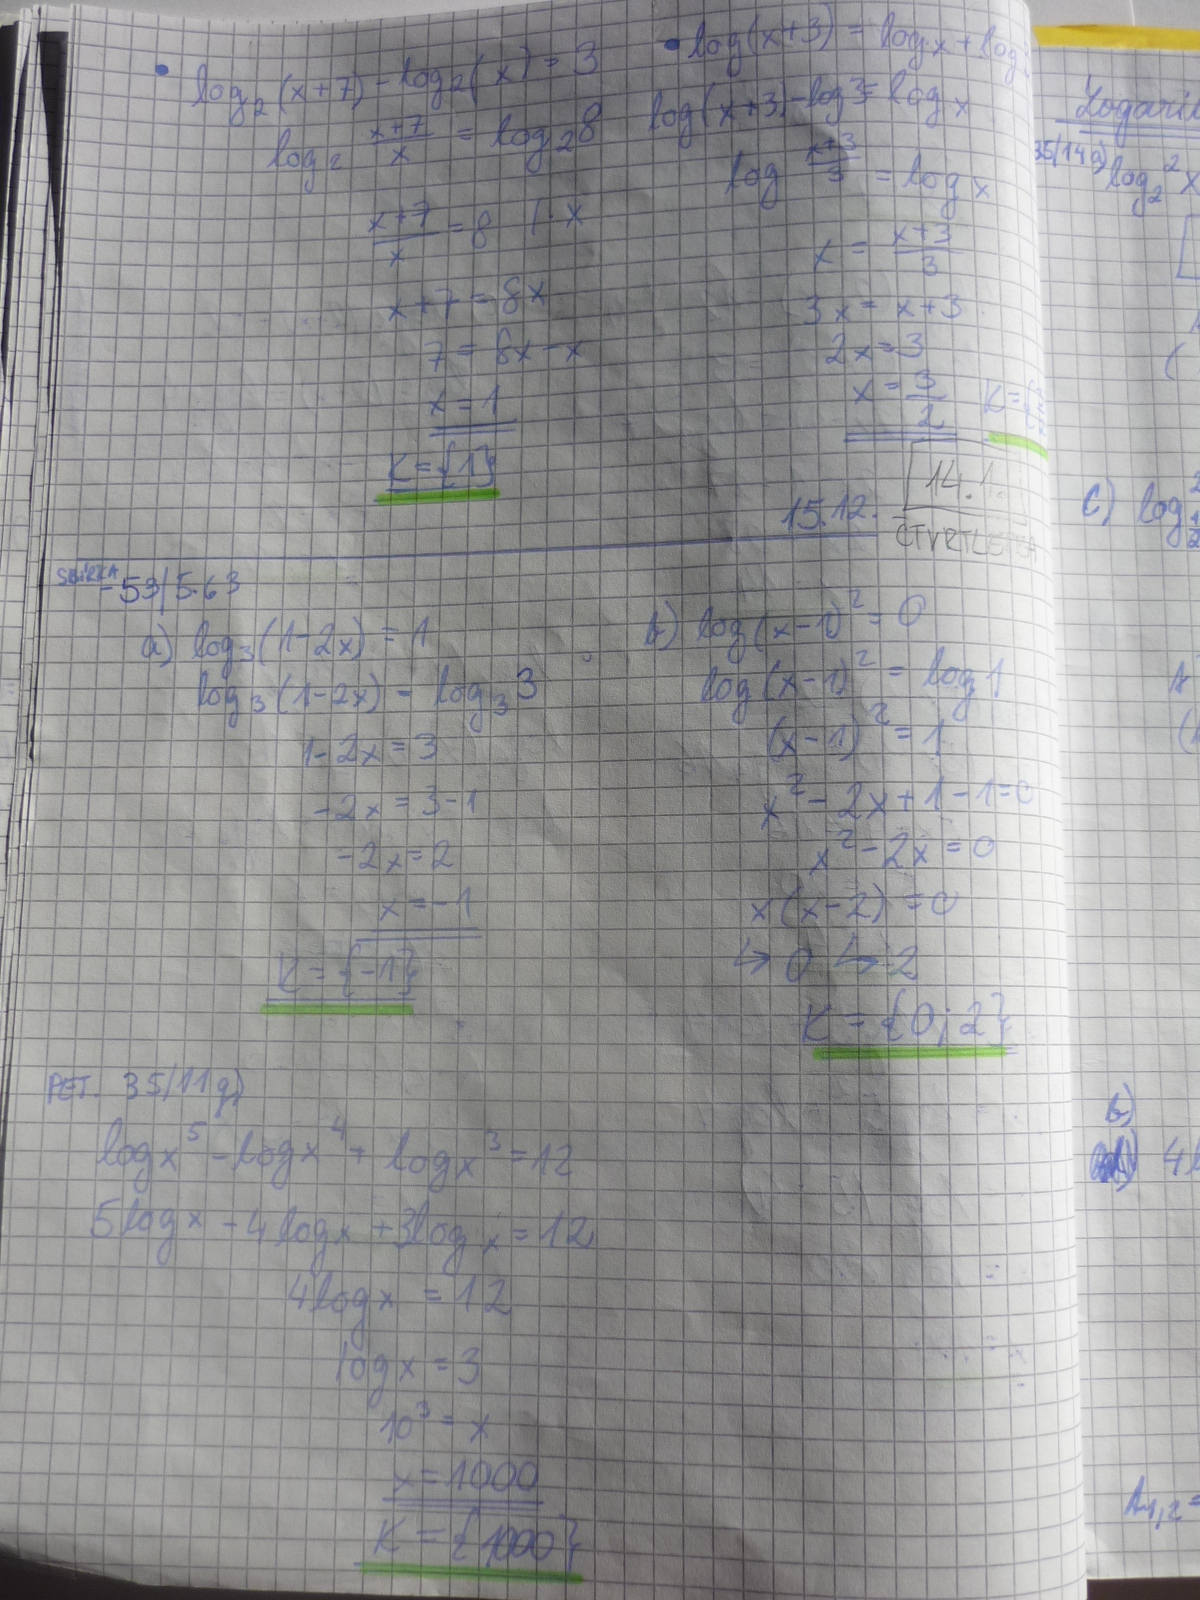 • log₂(x+7) - log₂(x) = 3
log₂ (x+7)/x = log₂8
(x+7)/x = 8 /·x
x+7 = 8x
7 = 8x-x
x = 1
K = {1}
• log(x+3) = log x + log
log(x+3) - log3 = log x
log (x+3)/3 = log x
x = (x+3)/3
3x = x+3
2x = 3
x = 3/2
K = {
14.
15.12.
SBÍRKA
- 53/5.63
a) log₃(1-2x) = 1
log₃(1-2x) = log₃3
1-2x = 3
-2x = 3-1
-2x = 2
x = -1
K = {-1}
b) log(x-1)² = 0
log(x-1)² = log1
(x-1)² = 1
x² - 2x+1-1=0
x²-2x = 0
x(x-2) = 0
↳ 0 ↳ 2
K = {0; 2}
PET. 35/11g)
log x⁵ - log x⁴ + log x³ = 12
5log x - 4log x + 3log x = 12
4log x = 12
log x = 3
10³ = x
x = 1000
K = {1000}
35/14a) log₂²x
c) log
b)